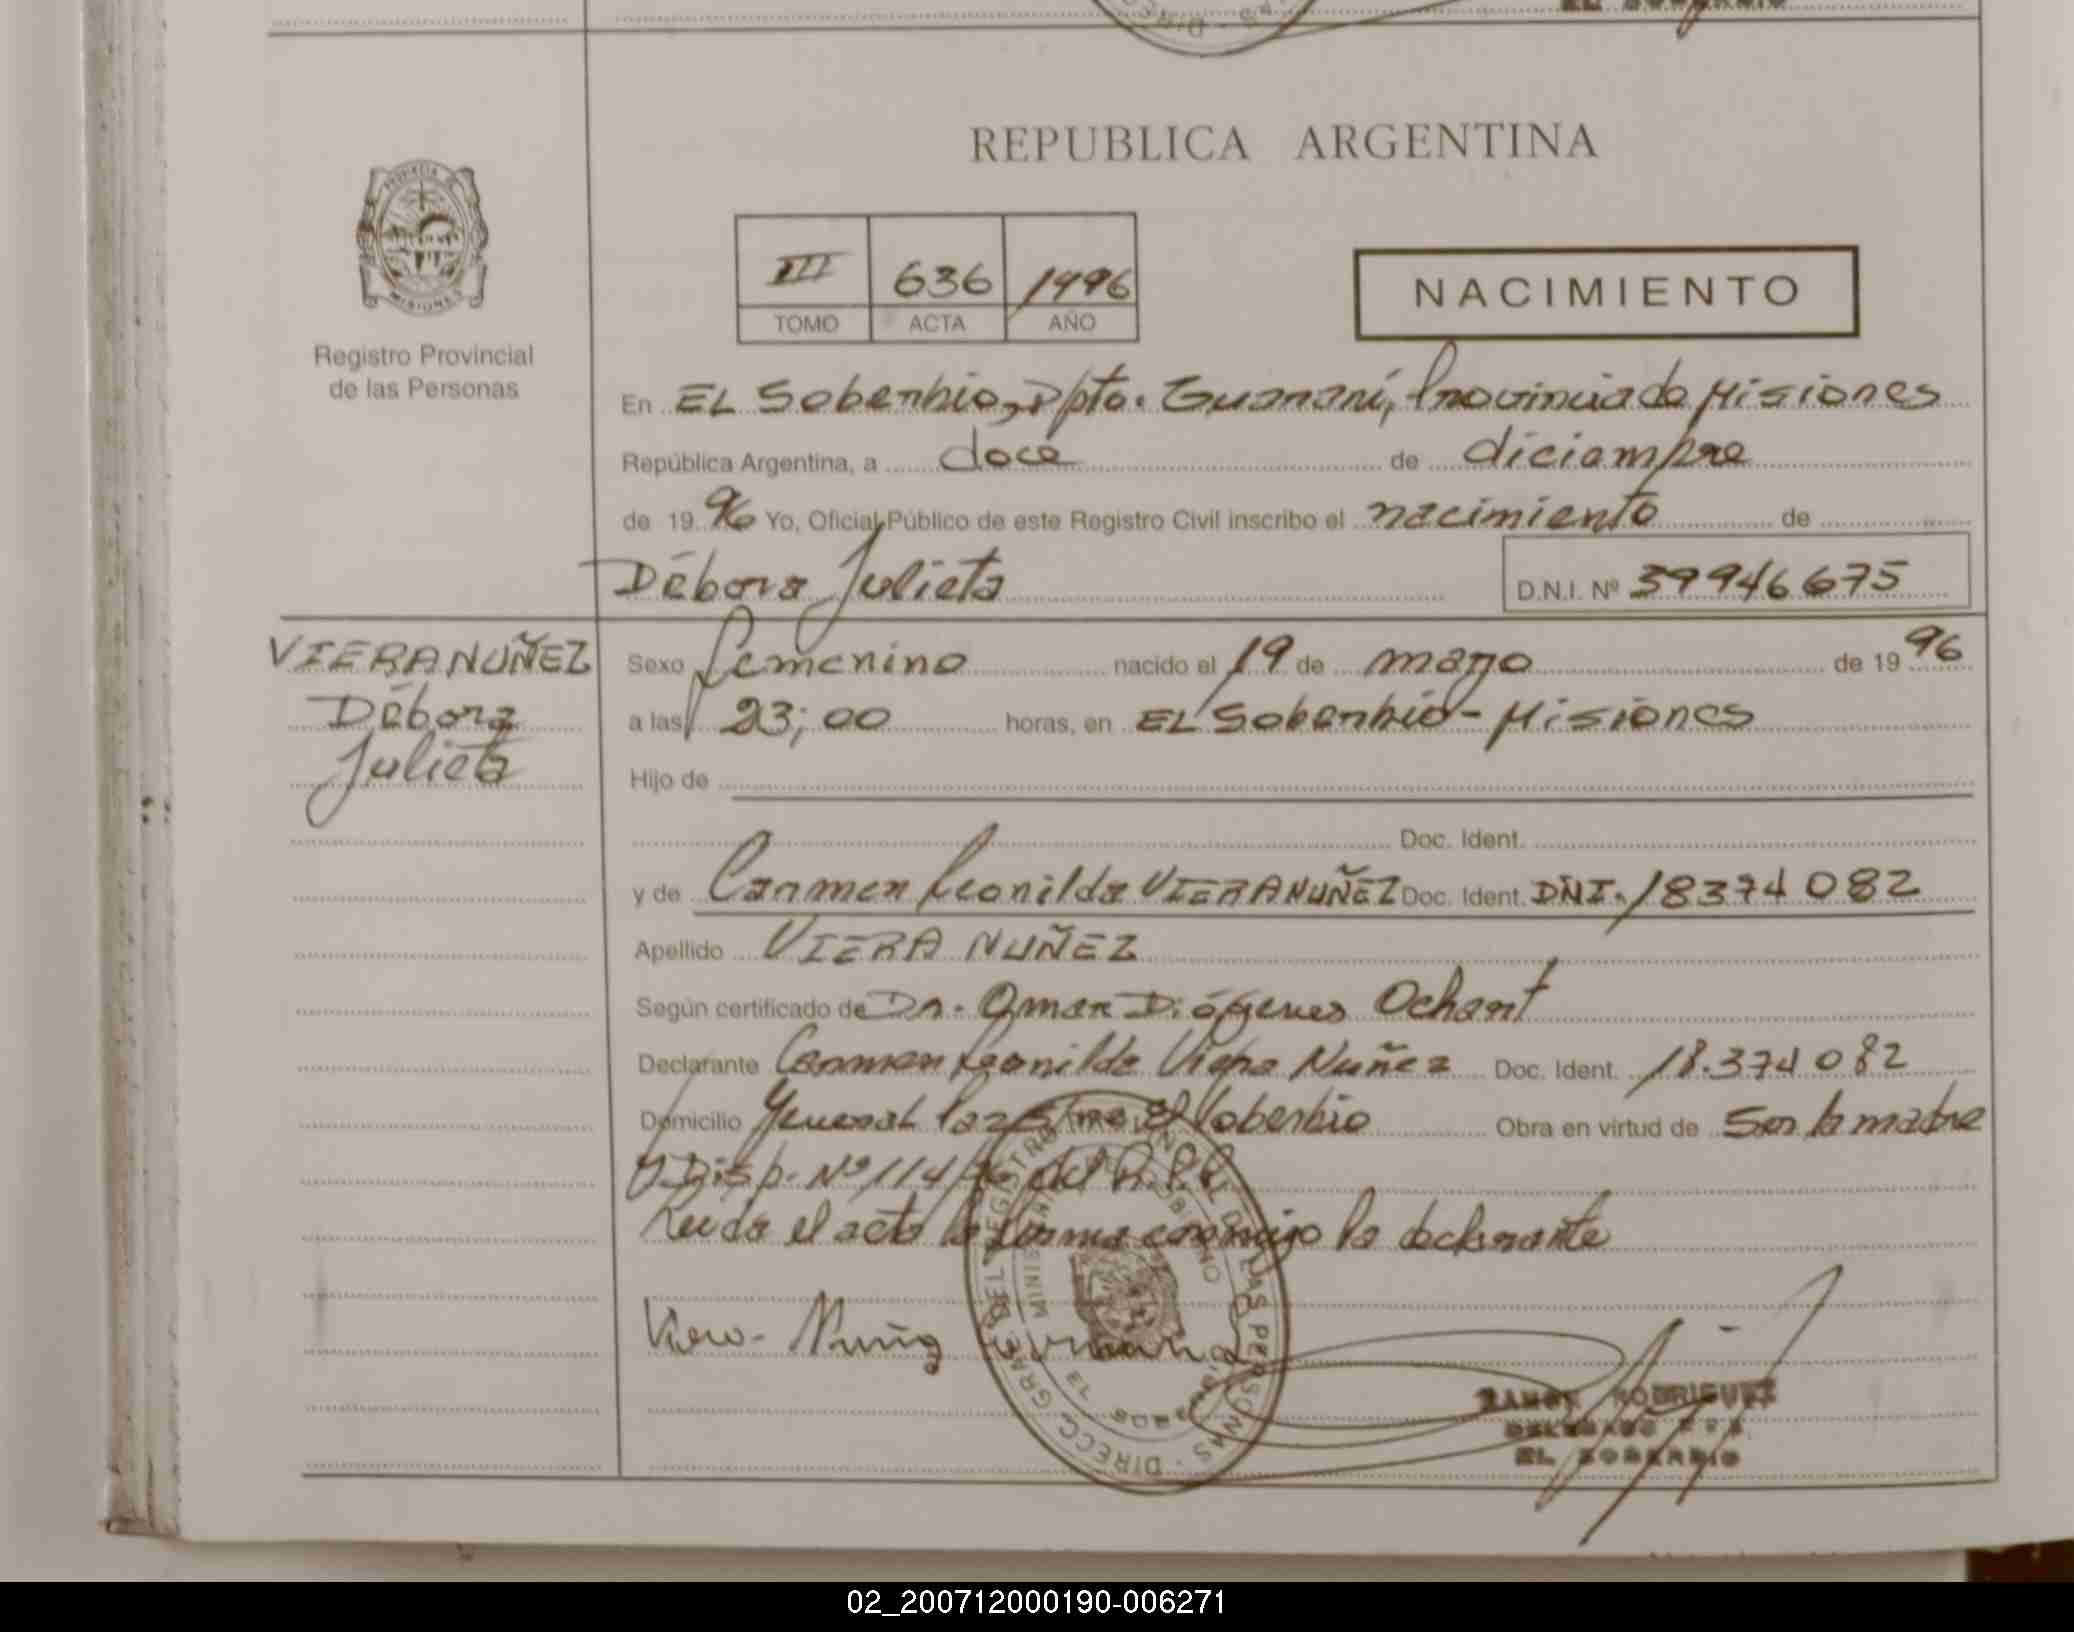 REPUBLICA ARGENTINA
PROVINCIA DE
MISIONES
Registro Provincial
de las Personas
III 636 1996
TOMO ACTA AÑO
NACIMIENTO
En EL Soberbio, Dpto. Guaraní, Provincia de Misiones
República Argentina, a doce de diciembre
de 1996 Yo, Oficial Público de este Registro Civil inscribo el nacimiento de
Débora Julieta D.N.I. Nº 39946675
VIERA NUÑEZ
Débora
Julieta
Sexo femenino nacido el 19 de mayo de 1996
a las 23;00 horas, en EL Soberbio - Misiones
Hijo de
Doc. Ident.
y de Carmen Leonilda VIERA NUÑEZ Doc. Ident. DNI. 18374082
Apellido VIERA NUÑEZ
Según certificado de Dr. Omar Diógenes Ochant
Declarante Carmen Leonilda Viera Nuñez Doc. Ident. 18.374082
Domicilio General Paz El Soberbio Obra en virtud de Ser la madre
y Disp. Nº 114/96 del R.P.P.
Leida el acta la firma conmigo la declarante
RAMON RODRIGUEZ
DELEGADO R.P.P.
EL SOBERBIO
02_200712000190-006271